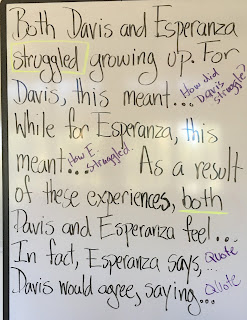 Both Davis and Esperanza
struggled growing up. For
Davis, this meant... How did Davis struggle?
While for Esperanza, this
meant... How E. struggled. As a result
of these experiences, both
Davis and Esperanza feel...
In fact, Esperanza says,... Quote
Davis would agree, saying... Quote